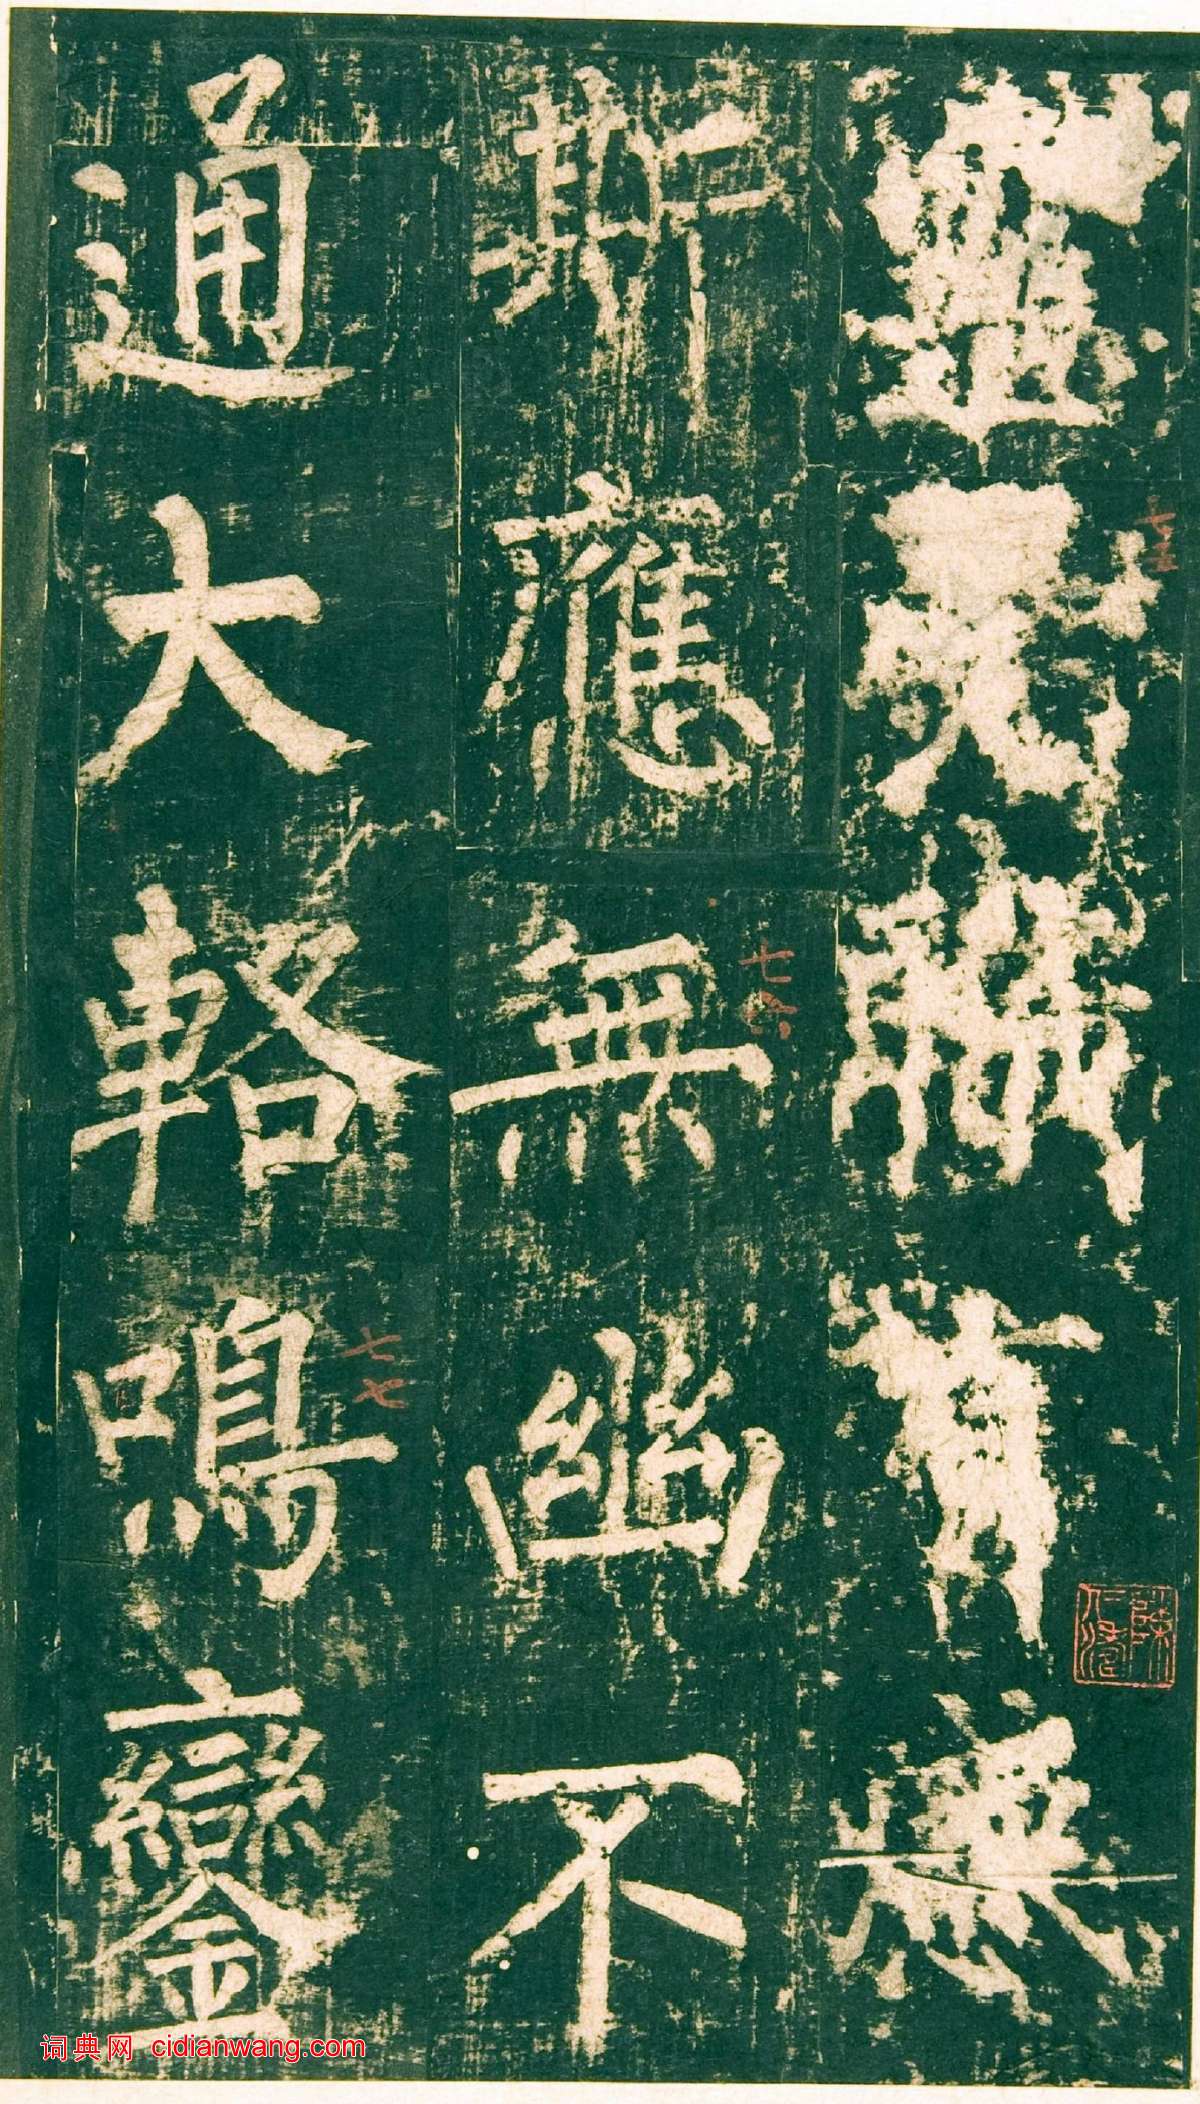 靈受職有感
斯應無幽不
通大輅鳴鑾
七五
七六
七七
词典网 cidianwang.com